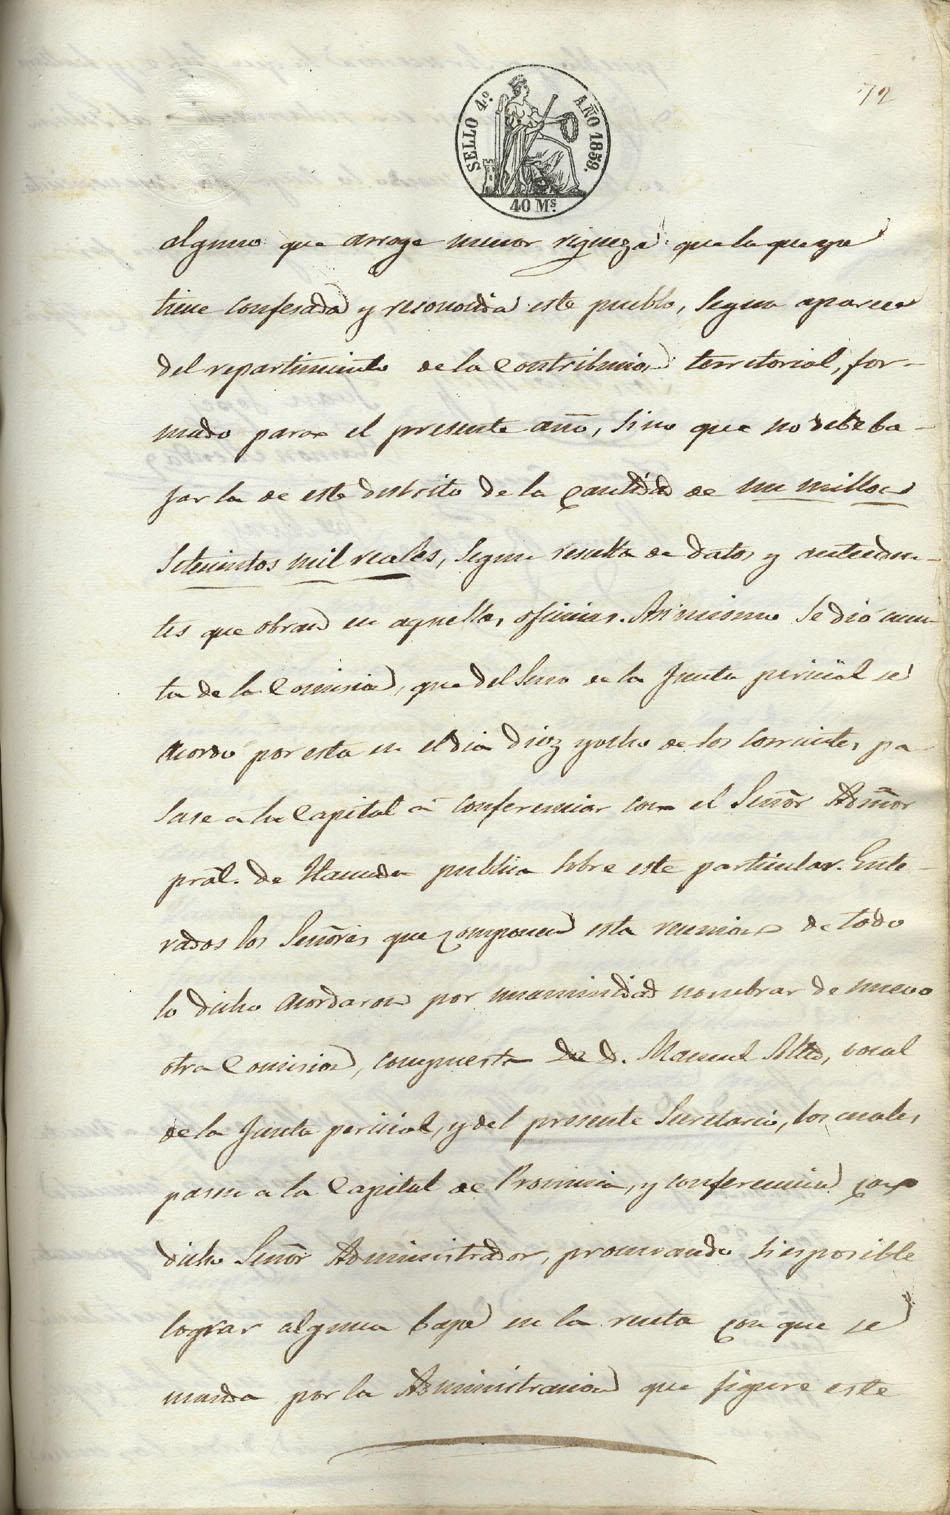 72
SELLO 4.º AÑO 1859.
40 Ms.
alguno que arroje menor riqueza que la que ya
tiene confesada y reconocida este pueblo, segun aparece
del repartimiento de la Contribucion territorial, for-
mado para el presente año, sino que no debe ba-
jar la de este distrito de la cantidad de un millon
setecientos mil reales, segun resulta de datos y anteceden-
tes que obran en aquellas oficinas. Asi mismo se dió cuen-
ta de la Comision, que del seno de la Junta pericial se
acordó por esta en el dia diez y ocho de los corrientes, pa
sase a la Capital á conferenciar con el Señor Admõr
prãl. de Hacienda publica sobre este particular. Ente-
rados los Señores que componen esta reunion de todo
lo dicho acordaron por unanimidad nombrar de nuevo
otra Comision, compuesta de D. Manuel Soltó, vocal
de la Junta pericial, y del presente Secretario, los cuales,
pasen a la Capital de Provincia, y conferencien con
dicho Señor Administrador, procurando si es posible
lograr alguna baja en la renta con que se
manda por la Administracion que figure este